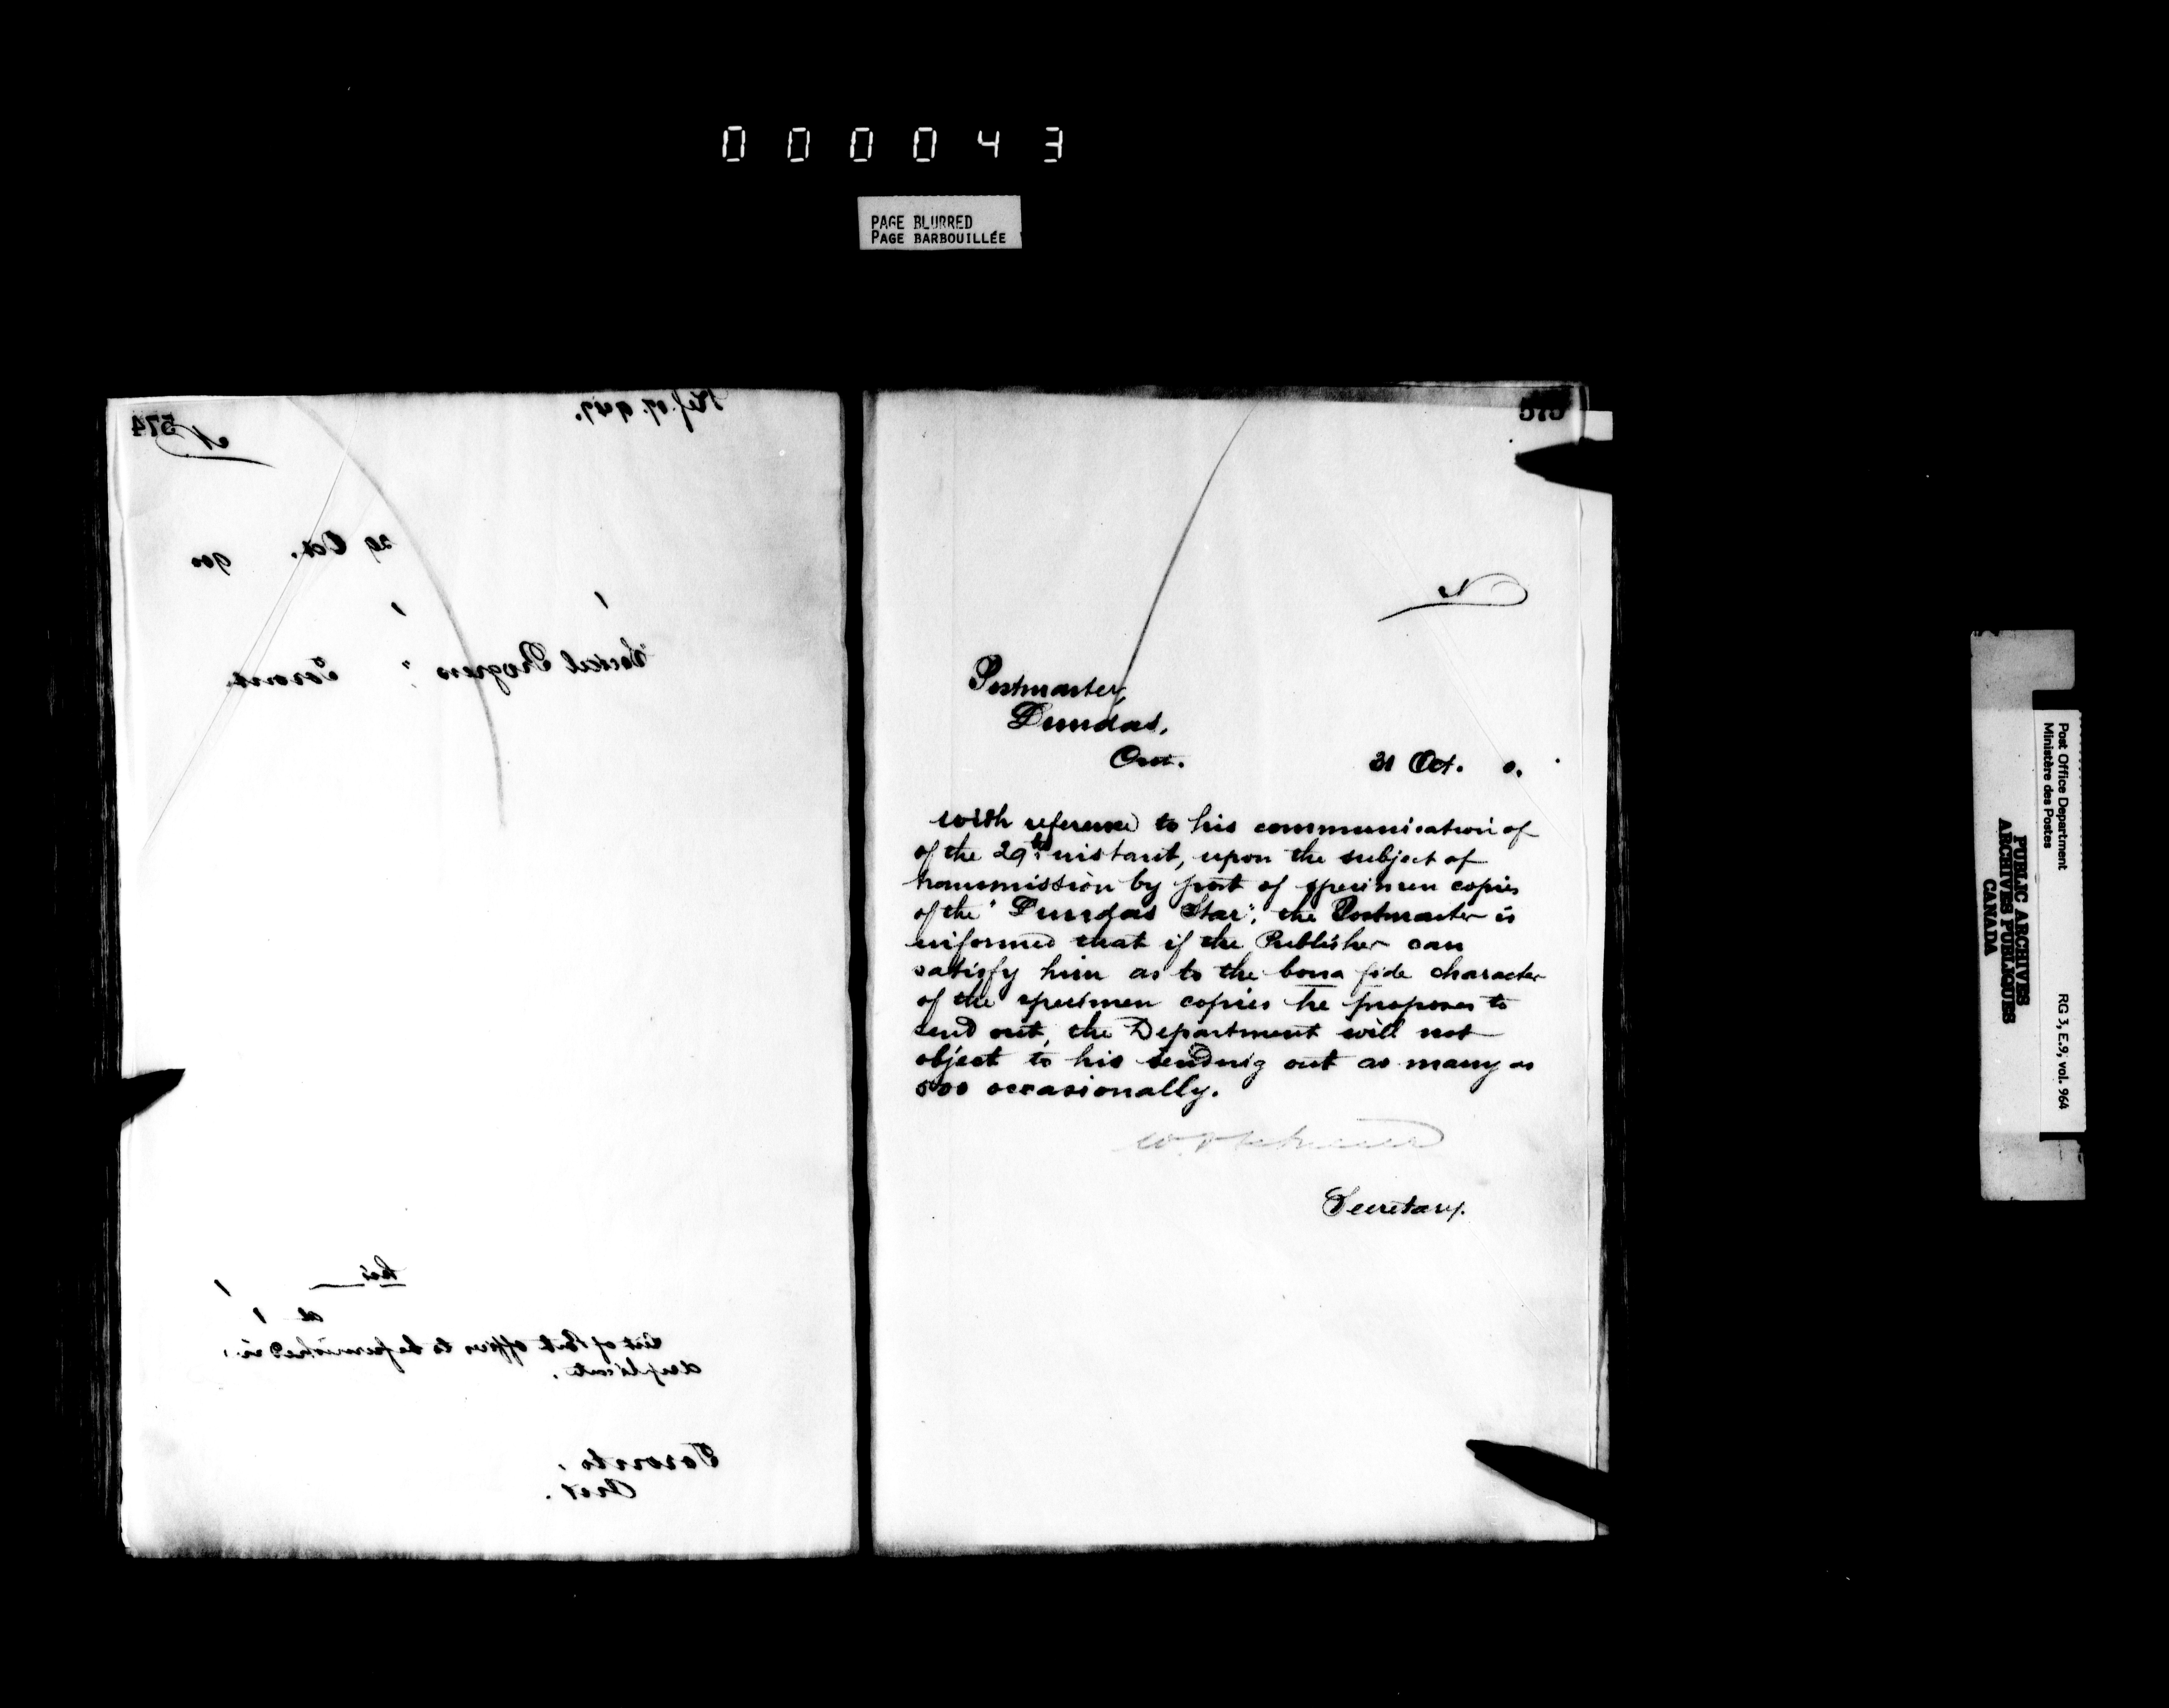 000043
PAGE BLURRED
PAGE BARBOUILLÉE
574
N
Ref. 07.947.
29 Oct. 900
"Social Progress" Toronto
his
at 1
List of Post offices to be furnished in
duplicate.
Toronto,
Ont.
575
N
Postmaster,
Dundas,
Ont.
31 Oct. 0.
With reference to his communication of
of the 29th instant, upon the subject of
transmission by post of specimen copies
of the "Dundas Star", the Postmaster is
informed that if the Publisher can
satisfy him as to the bona fide character
of the specimen copies he proposes to
send out, the Department will not
object to his sending out as many as
500 occasionally.
Secretary.
Post Office Department
Ministère des Postes
RG 3, E.9, vol. 964
PUBLIC ARCHIVES
ARCHIVES PUBLIQUES
CANADA